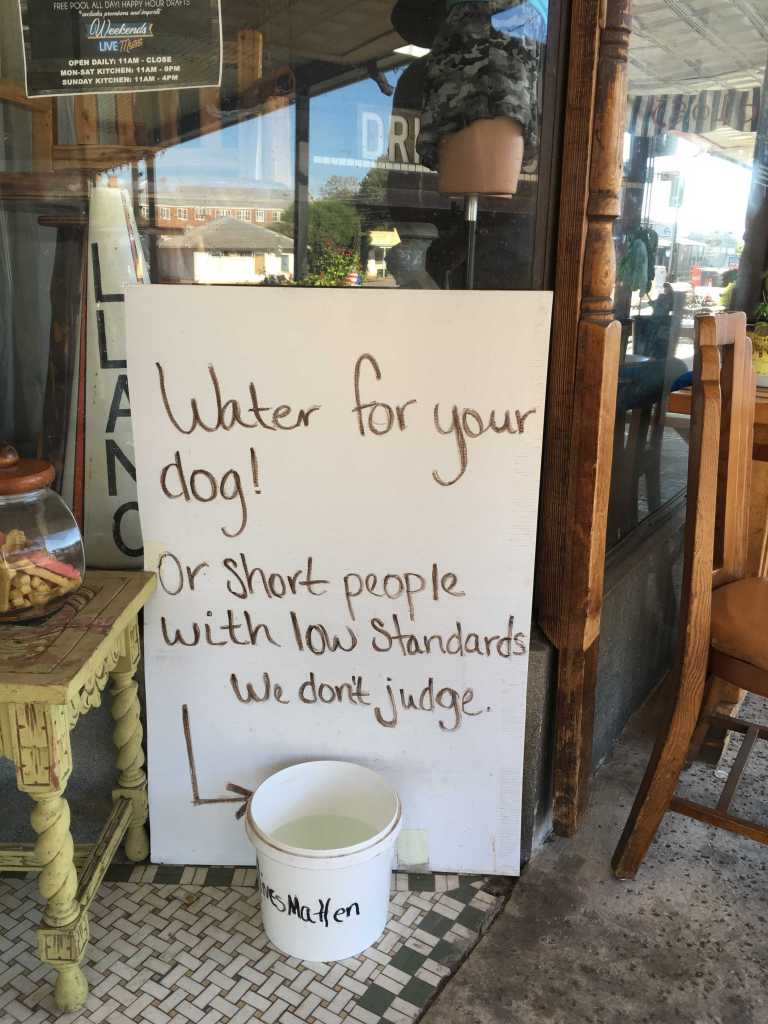 FREE POOL ALL DAY! HAPPY HOUR DRAFTS
*excludes premiums and imports
Weekends
LIVE Music
OPEN DAILY: 11AM - CLOSE
MON-SAT KITCHEN: 11AM - 9PM
SUNDAY KITCHEN: 11AM - 4PM
DRI
LLANO
Water for your
dog!
Or short people
with low standards
We don't judge.
Matter